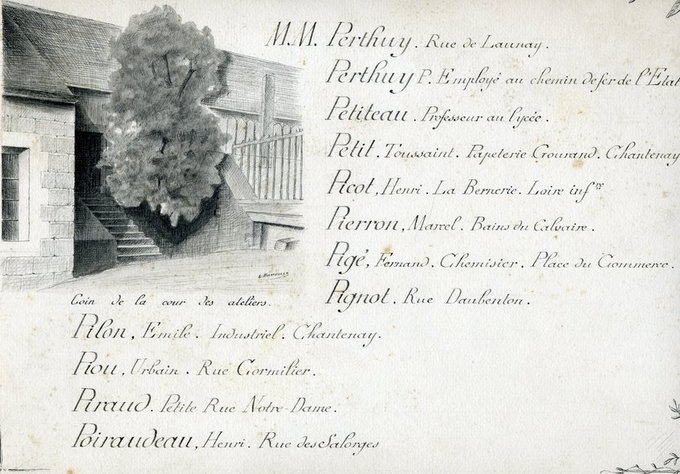 MM. Perthuy. Rue de Launay.
Perthuy P. Employé au chemin de fer de l'Etat
Petiteau. Professeur au lycée.
Petit. Toussaint. Papeterie Gourand. Chantenay
Picot, Henri. La Bernerie. Loire infre
Pierron, Marcel. Bains du Calvaire.
Pigé, Fernand. Chemisier. Place du Commerce.
Pignot. Rue Daubenton.
Coin de la cour des ateliers.
Pilon, Emile. Industriel. Chantenay.
Piou, Urbain. Rue Cormilier.
Piraud. Petite Rue Notre-Dame.
Poiraudeau, Henri. Rue des Salorges